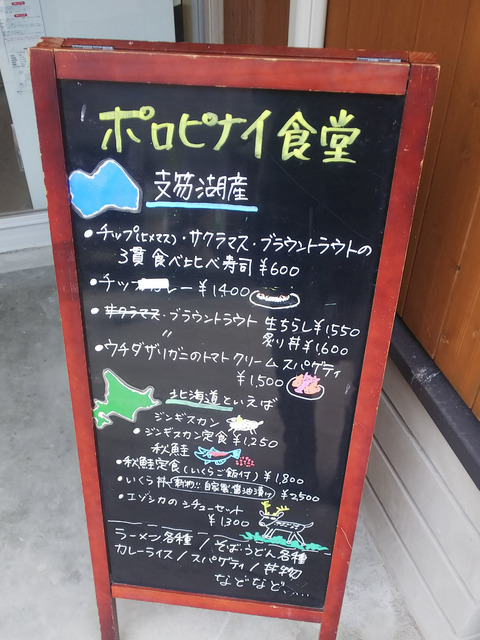 ポロピナイ食堂
支笏湖産
・チップ(ヒメマス)・サクラマス・ブラウントラウトの
3貫 食べ比べ寿司 ¥600
・チップカレー ¥1400
・サクラマス・ブラウントラウト 生ちらし ¥1,550
〃 炙り丼 ¥1,600
・ウチダザリガニのトマトクリームスパゲティ
¥1,500
北海道といえば
ジンギスカン
・ジンギスカン定食 ¥1,250
秋鮭
・秋鮭定食(いくらご飯付) ¥1,800
・いくら丼(新物!! 自家製醤油漬け) ¥2,500
・エゾシカのシチューセット
¥1300
ラーメン各種 / そばうどん各種
カレーライス / スパゲティ / 丼物
などなど.....